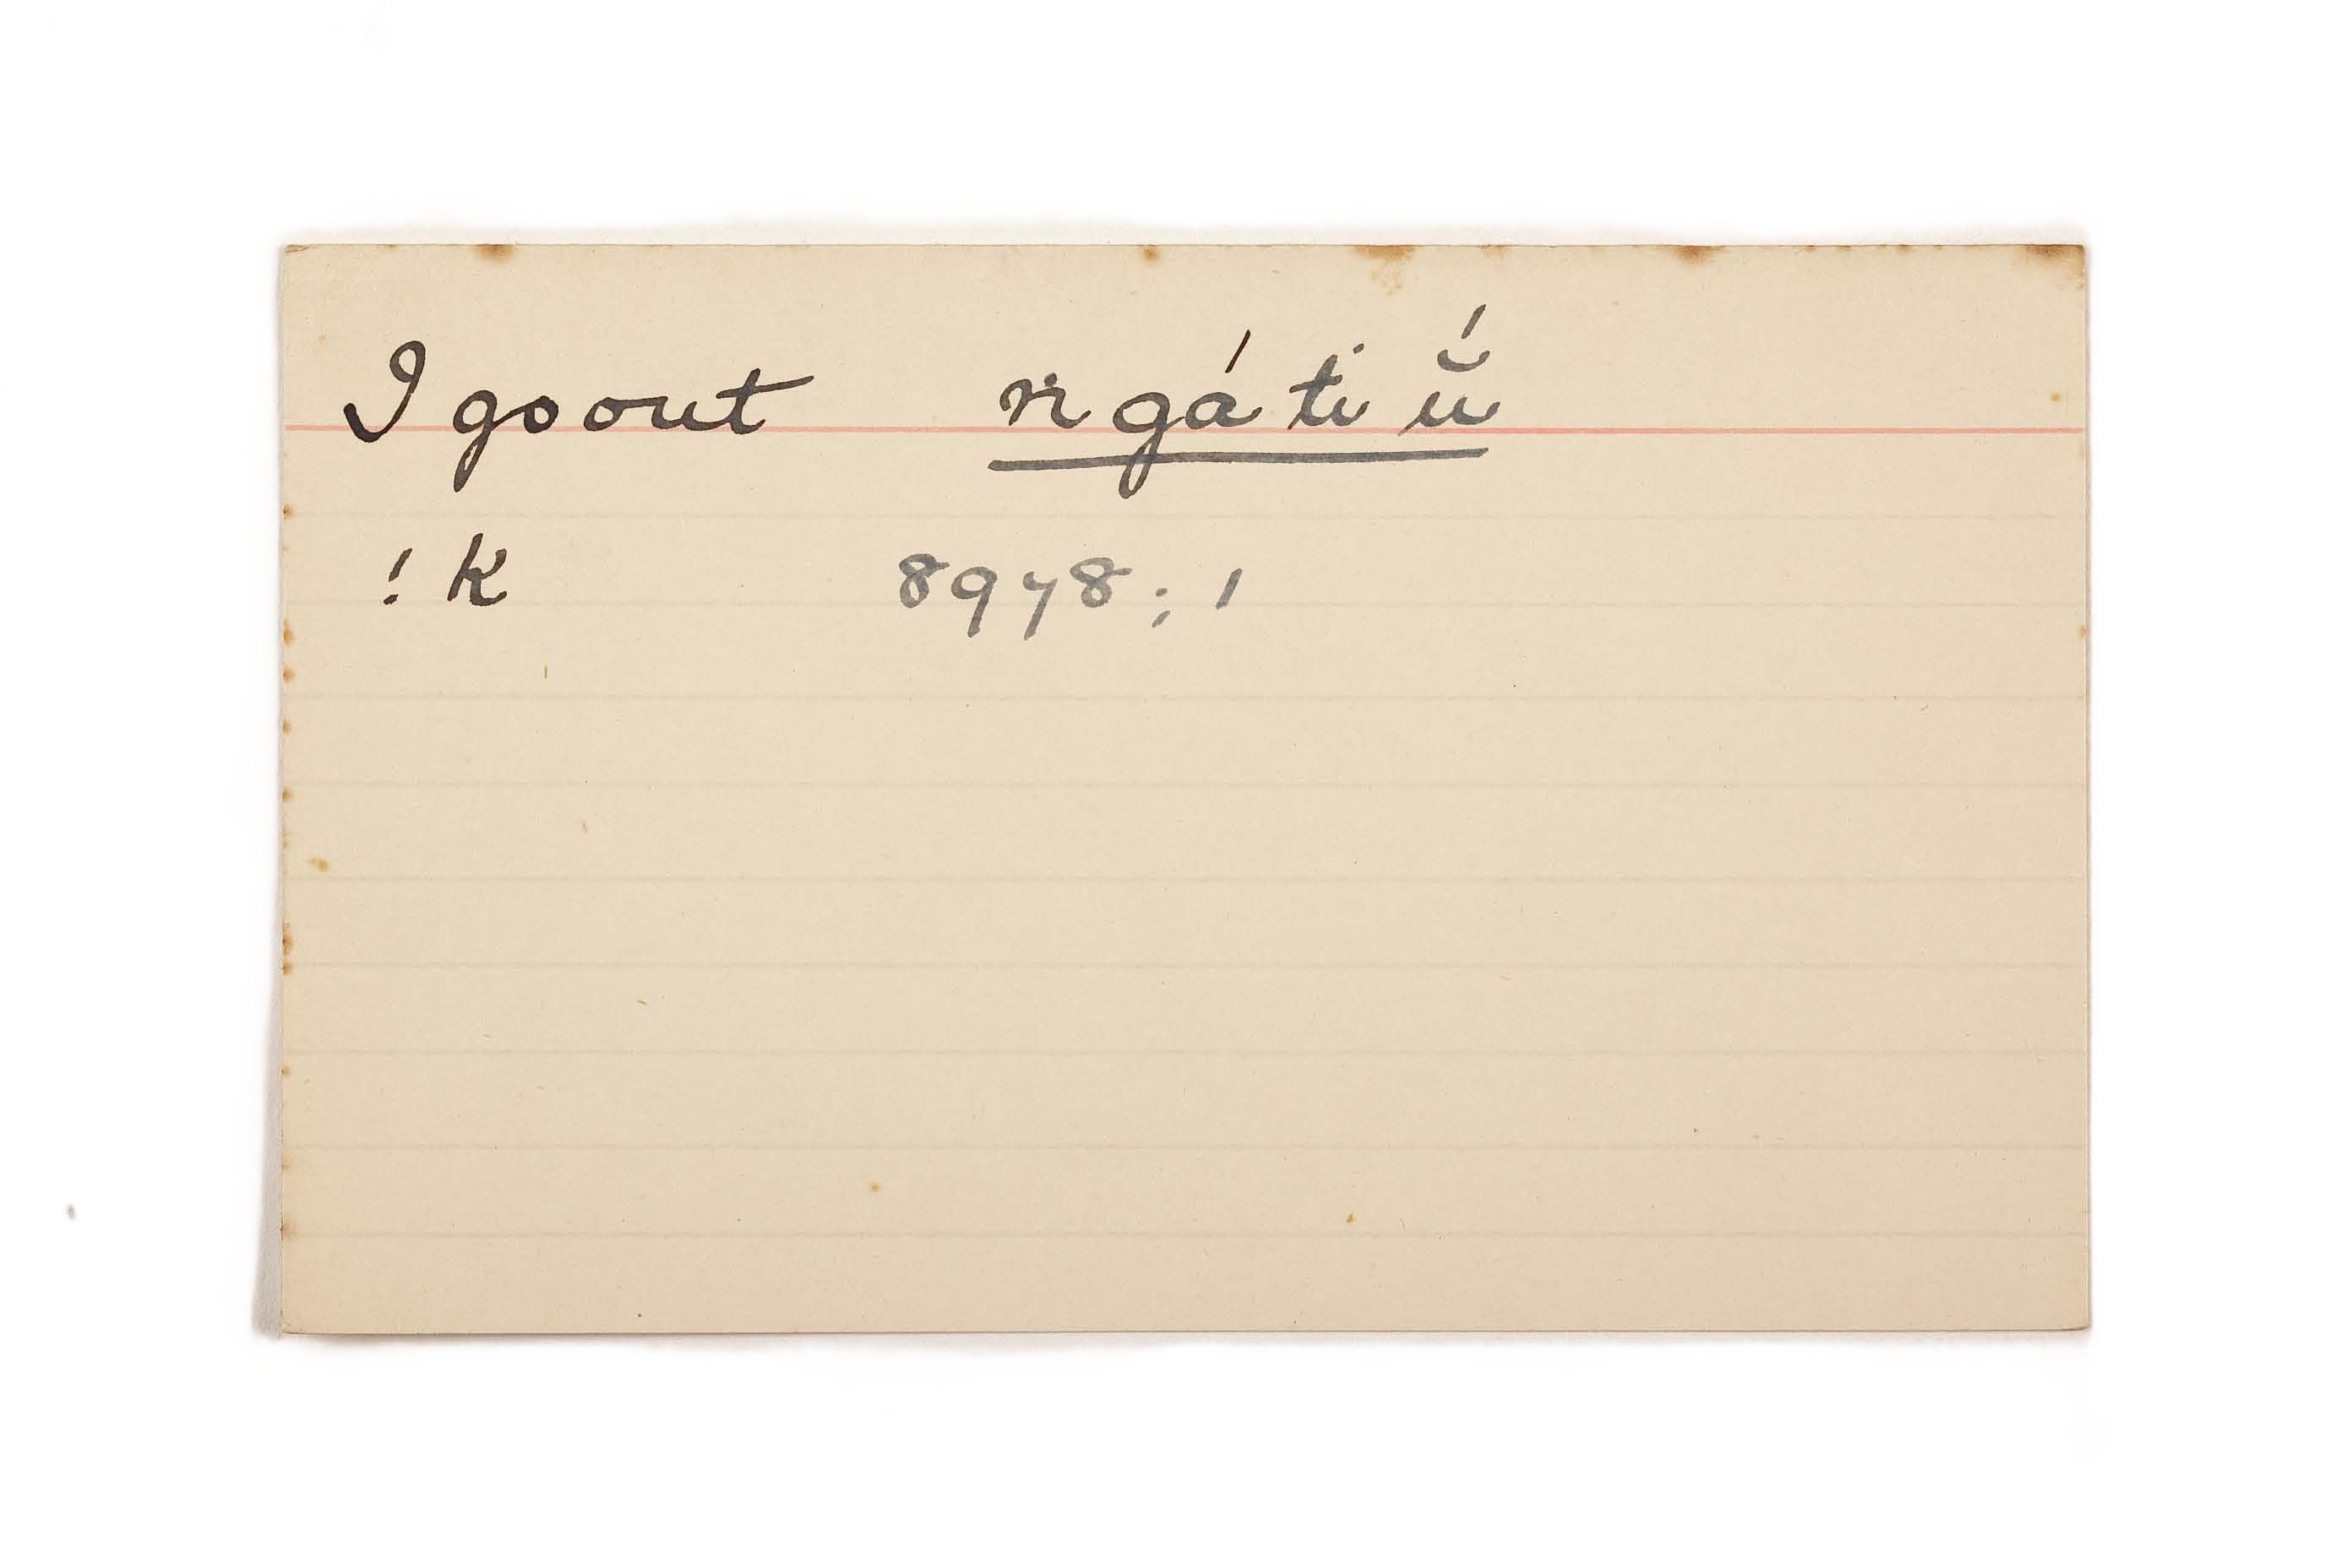 I go out ṅ gá ti ŭ́
!k 8978; 1